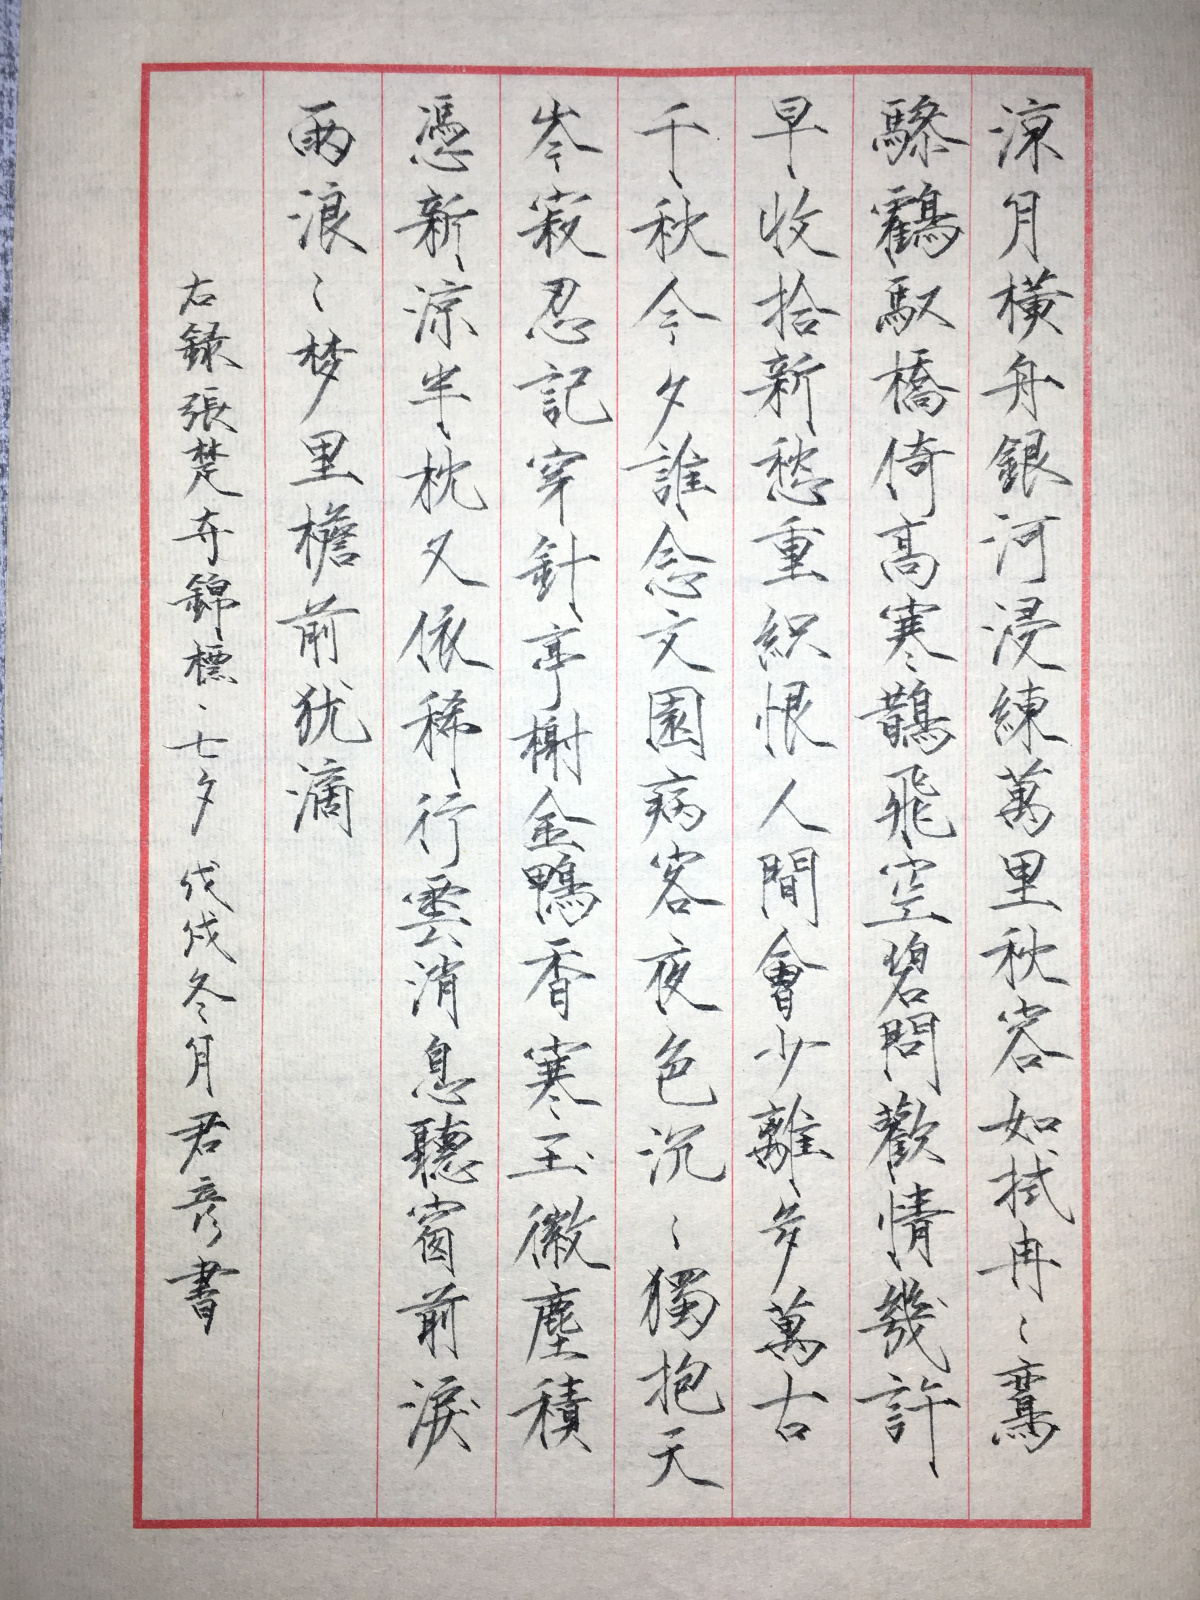 涼月橫舟銀河浸練萬里秋容如拭冉〻鸞
驂鶴馭橋倚高寒鵲飛空碧問歡情幾許
早收拾新愁重織恨人間會少離多萬古
千秋今夕誰念文園病客夜色沉〻獨抱天
岑寂忍記穿針亭榭金鴨香寒玉徽塵積
憑新涼半枕又依稀行雲消息聽窗前淚
雨浪〻梦里檐前犹滴
右録張埜夺錦標、七夕 戊戌冬月君彦書